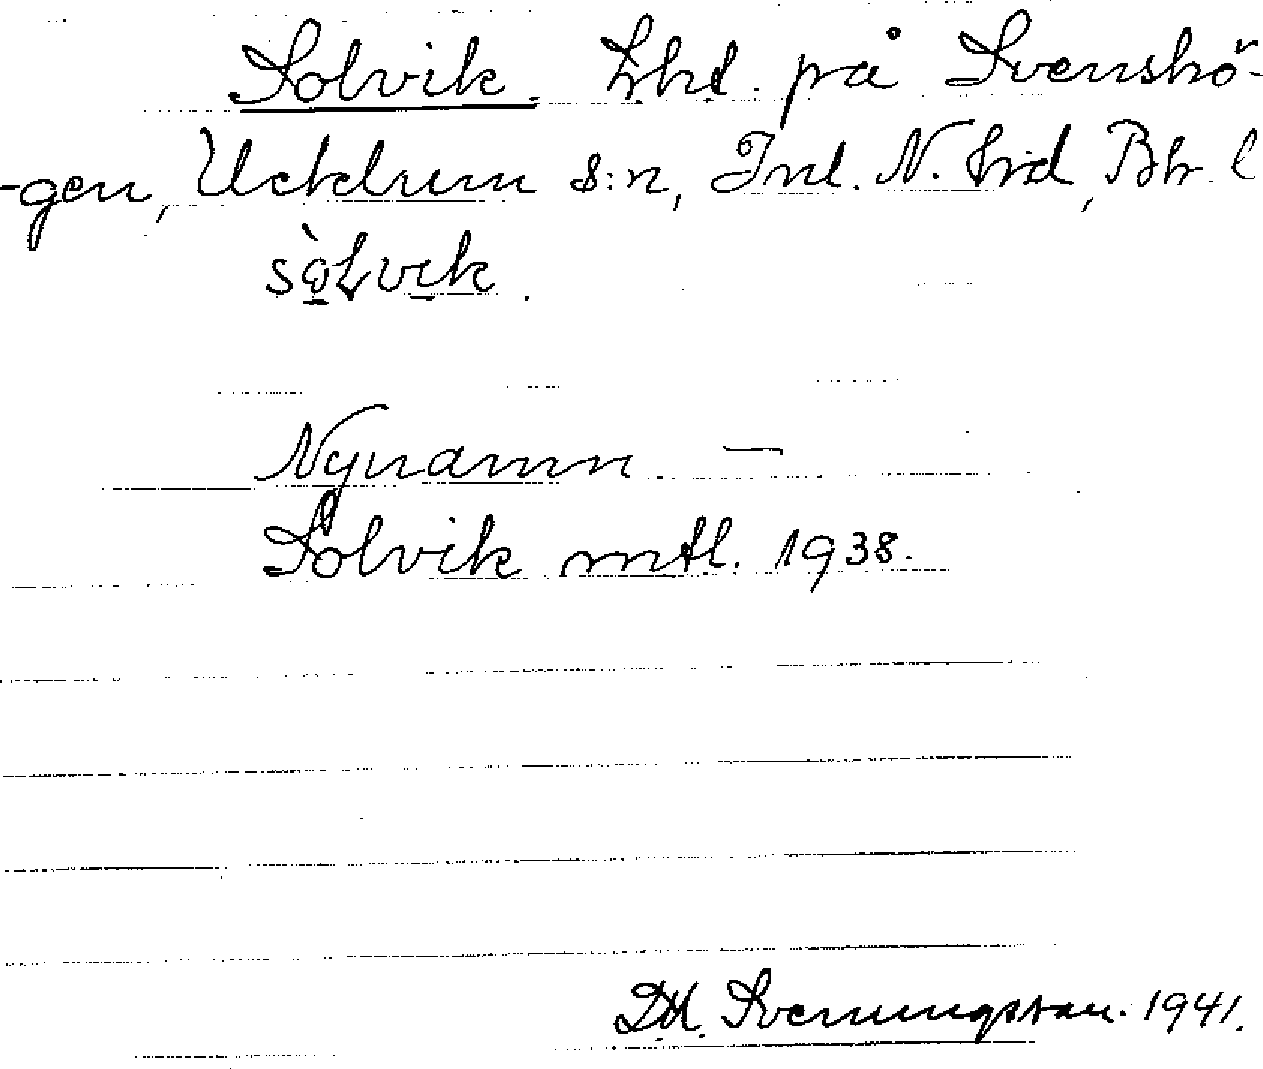 Solvik. Lht. på Svenskö-
-gen, Ucklum s:n, Inl. N. hd, Bh. l
sò̱lvik.
Nynamn —
Solvik mtl. 1938.
D:d. Svenungsson. 1941.